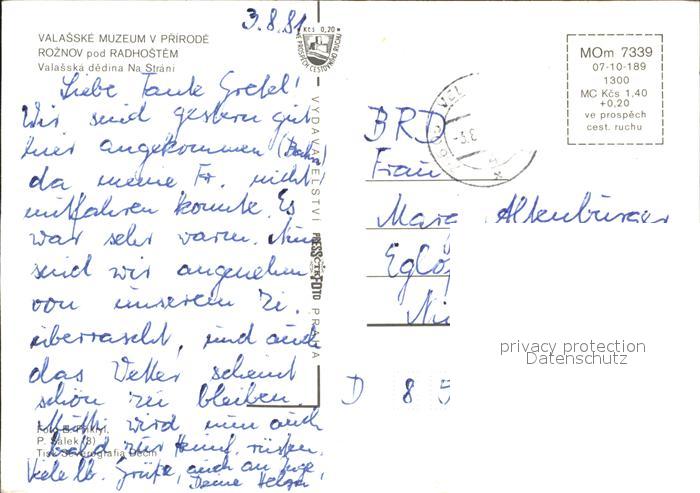 3.8.81
VALAŠSKÉ MUZEUM V PŘÍRODĚ
ROŽNOV pod RADHOŠTĚM
Valašská dědina Na Stráni
Liebe Tante Gretel!
Wir sind gestern gut
hier angekommen (Bahn)
da meine Fr. nicht
mitfahren konnte. Es
war sehr warm. Nun
sind wir angenehm
von unserem Zi.
überrascht, und auch
das Wetter scheint
schön zu bleiben.
Mutti wird nun auch
bald zur Heimf. rüsten.
Viele lb. Grüße, auch an Inge,
Deine Helga!
P. Sálek (8)
Tisk Severografia Děčín
Kčs 0,20
VYDAVATELSTVÍ
PRESSFOTO
PRAHA
MOm 7339
07-10-189
1300
MC Kčs 1,40
+0,20
ve prospěch
cest. ruchu
BRD
Frau
Marg Altenburger
Eglo
Ni
D 8 5
privacy protection
Datenschutz